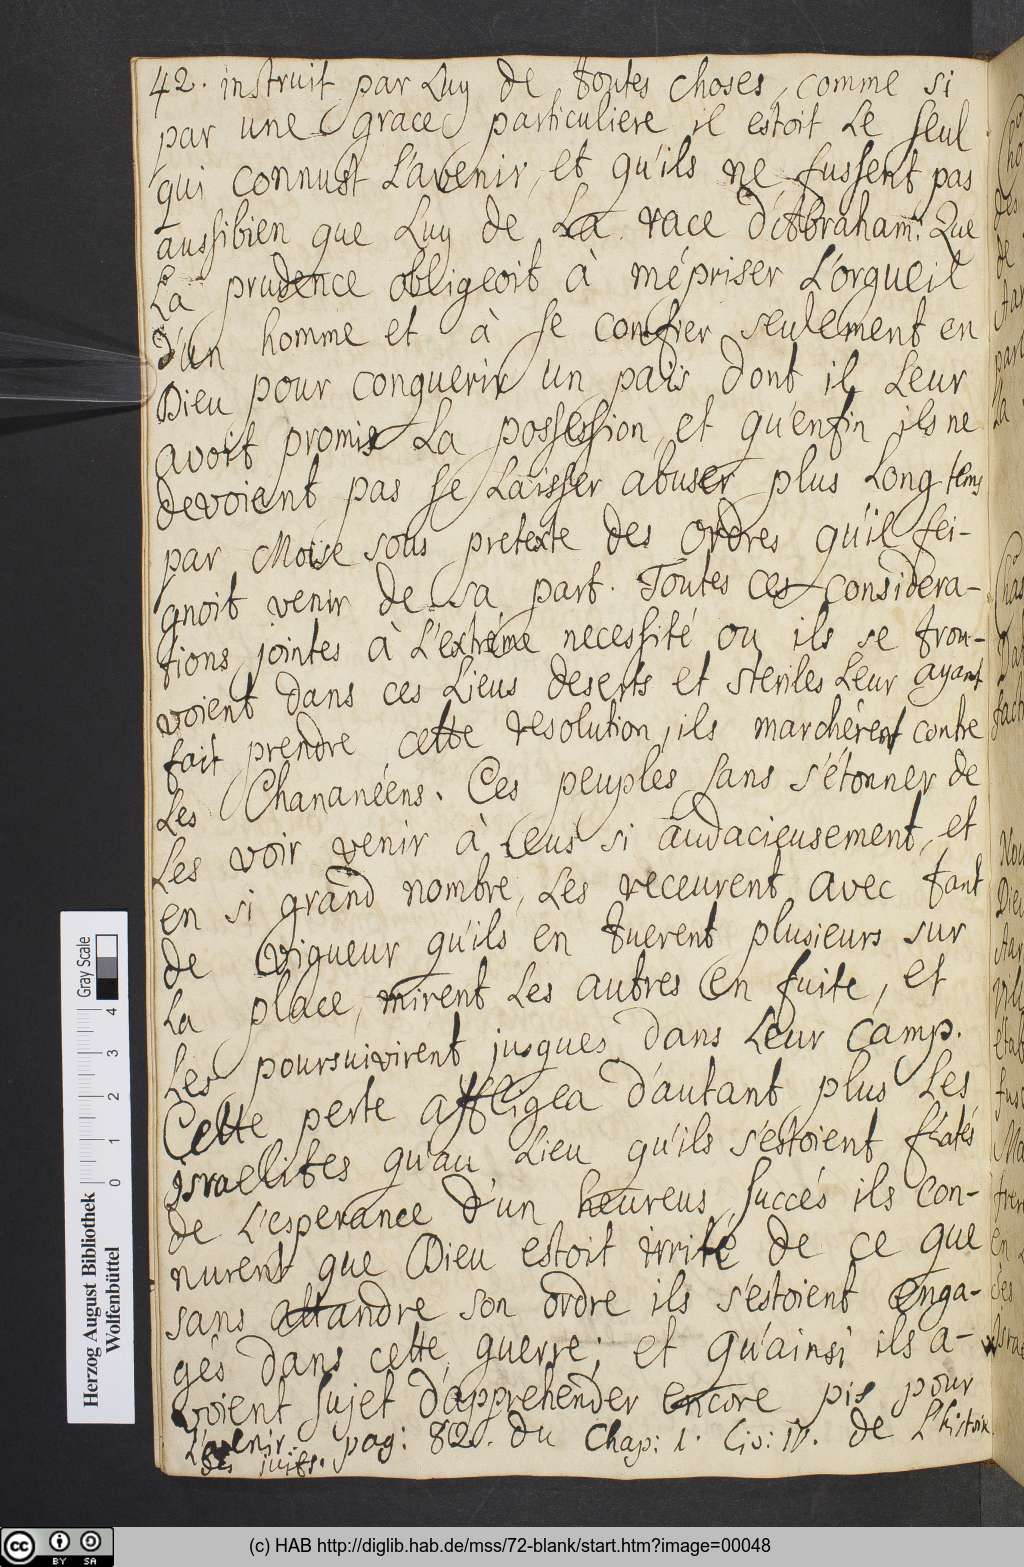 42. instruit par Luy de toutes choses, comme si
par une grace particuliere il estoit Le seul
qui connust L'avenir, et qu'ils ne fussent pas
aussibien que Luy de La race d'Abraham: Que
La prudence obligeoit à mépriser L'orgueil
d'un homme et à se confier seulement en
Dieu pour conquerir un païs dont il Leur
avoit promis La possession, et qu'enfin ils ne
devoient pas se Laisser abuser plus Long tems
par Moise sous pretexte des ordres qu'il fei-
gnoit venir de sa part. Toutes ces considera-
tions jointes à L'extréme necessité ou ils se trou-
voient dans ces Lieus deserts et steriles Leur ayant
fait prendre cette resolution, ils marchérent contre
Les Chananéens. Ces peuples sans s'étonner de
Les voir venir à eus si audacieusement, et
en si grand nombre, Les receurent avec tant
de vigueur qu'ils en tuerent plusieurs sur
La place, mirent Les autres en fuite, et
Les poursuivirent jusques dans Leur camp.
Cette perte affligea d'autant plus Les
israelites qu'au Lieu qu'ils s'estoient flatés
de L'esperance d'un heureus succés ils con-
nurent que Dieu estoit irrité de ce que
sans attandre son ordre ils s'estoient enga-
gés dans cette guerre; et qu'ainsi ils a-
voient sujet d'apprehender encore pis pour
L'avenir. pag: 82. du Chap: 1. Liv: IV. de L'histoire
des juifs.
Herzog August Bibliothek
Wolfenbüttel
0 1 2 3 4
Gray Scale
cc BY SA
(c) HAB http://diglib.hab.de/mss/72-blank/start.htm?image=00048